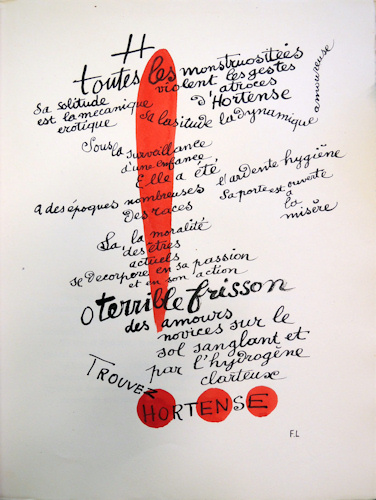 H
toutes les monstruosités
violent les gestes
atroces
d'Hortense
Sa solitude
est la mécanique
erotique
Sa lasitude la dynamique
amoureuse
Sous la surveillance
d'une enfance
Elle a été,
a des époques nombreuses
l'ardente hygiène
Des races
Sa porte est ouverte
à
la
misère
La, la moralité
des êtres
actuels
se decorpore en sa passion
et en son action
O terrible frisson
des amours
novices sur le
sol sanglant et
par l'hydrogène
clarteux
TROUVEZ
HORTENSE
F.L